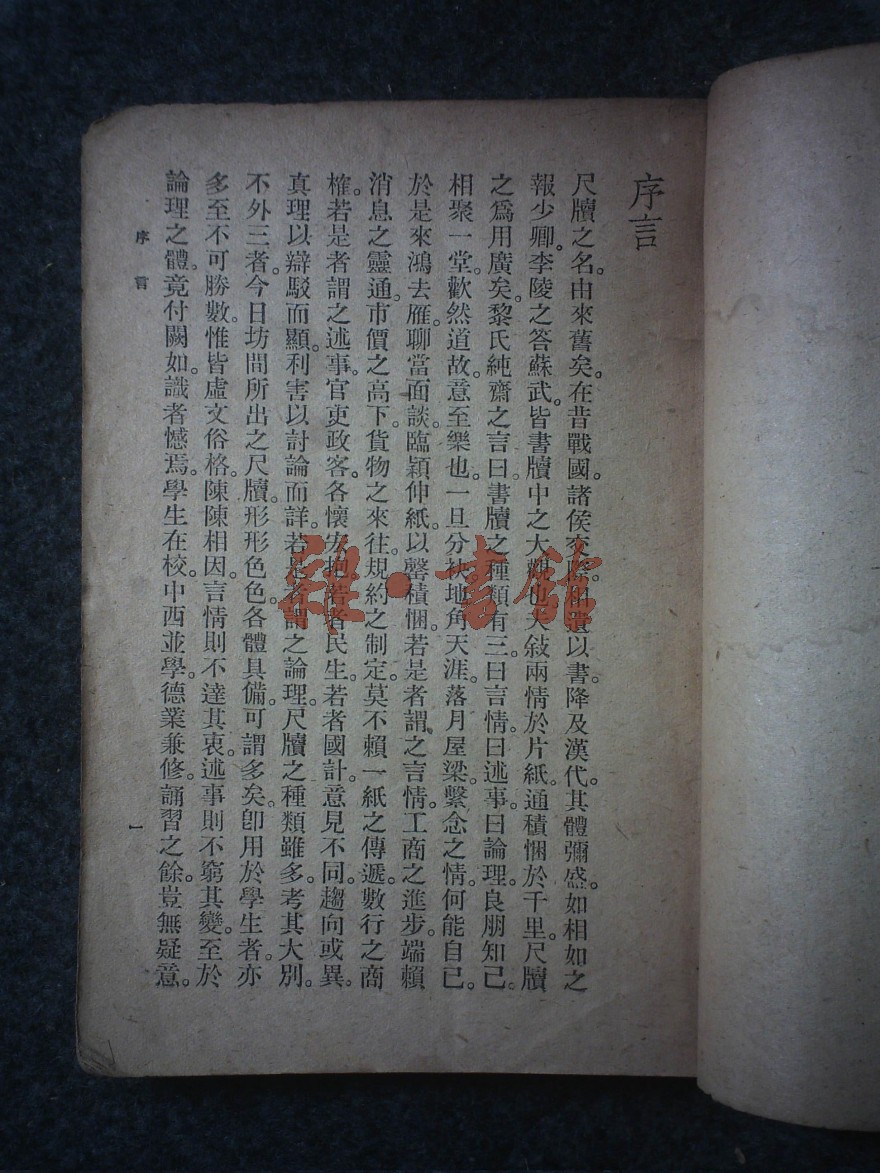 序言
尺牘之名。由來舊矣。在昔戰國。諸侯交際。相遺以書。降及漢代。其體彌盛。如相如之
報少卿。李陵之答蘇武。皆書牘中之大觀也。夫敍兩情於片紙。通積悃於千里。尺牘
之爲用廣矣。黎氏純齋之言曰。書牘之種類有三。曰言情。曰述事。曰論理。良朋知己。
相聚一堂。歡然道故。意至樂也。一旦分袂。地角天涯。落月屋梁。繫念之情。何能自已。
於是來鴻去雁。聊當面談。臨穎伸紙。以罄積悃。若是者。謂之言情。工商之進步。端賴
消息之靈通。市價之高下。貨物之來往。規約之制定。莫不賴一紙之傳遞。數行之商
榷。若是者。謂之述事。官吏政客。各懷抱。若者民生。若者國計。意見不同。趨向或異。
真理以辯駁而顯。利害以討論而詳。若是者。謂之論理。尺牘之種類雖多。考其大別。
不外三者。今日坊間所出之尺牘。形形色色。各體具備。可謂多矣。卽用於學生者。亦
多至不可勝數。惟皆虛文俗格。陳陳相因。言情則不達其衷。述事則不窮其變。至於
論理之體。竟付闕如。識者憾焉。學生在校。中西並學。德業兼修。誦習之餘。豈無疑意。
序言
一
雜·書館